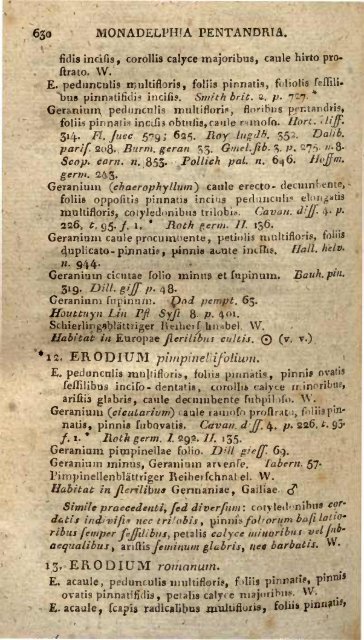 630 MONADELPHIA PENTANDRIA.
fidis incisis, corollis calyce majoribus, caule hirto pro-
strato. W.
E. pedunculis multifloris, foliis pinnatis, foliolis sessili-
bus pinnatifidis incisis. Smith brit. 2. p. 727.*
Geranium pedunculis multifloris, floribus pentandris,
foliis pinnatis incisis obtusis, caule ramoso. Hort. cliff.
314. Fl. suec 579; 625. Roy lugdb. 352. Dalib.
paris. 208. Burm. geran 33. Gmel. sib. 3. p. 275. n. 8.
Scop. carn. n. 853. Pollich pal. n. 646. Hoffm.
germ. 243.
Geranium (chaerophyllum) caule erecto-decumbente,
foliis oppositis pinnatis incisis pedunculis elongatis
multifloris, cotyledonibus trilobis. Cavan. diss. 4. p.
226. t. 95. f. 1. * Roth germ. II. 136.
Geranium caule procumbente, petiolis multifloris, foliis
duplicato-pinnatis, pinnis acute incisis. Hall. helv.
n. 944.
Geranium cicutae folio minus et supinum. Bauh. pin.
319. Dill. giss p. 48.
Geranium supinum. Dod pempt. 63.
Houttuyn Lin Pfl Syst 8. p. 401.
Schierlingsblättriger Reiherschnabel. W.
Habitat in Europae sterilibus cultis. ☉ (v. v.)
*12. ERODIUM pimpinellifolium.
E. pedunculis multifloris, foliis pinnatis, pinnis ovatis
sessilibus inciso-dentatis, corollis calyce minoribus,
aristis glabris, caule decumbente subpiloso. W.
Geranium (cicutarium) caule ramoso prostrato, foliis pin-
natis, pinnis subovatis. Cavan. diss. 4. p. 226. t. 95.
f. 1. * Roth germ. I. 292. II. 135.
Geranium pimpinellae folio. Dill giess. 69.
Geranium minus, Geranium arvense. Tabern. 57.
Pimpinellenblättriger Reiherschnabel. W.
Habitat in sterilibus Germaniae, Galliae ♂
Simile praecedenti, sed diversum: cotyledonibus cor-
datis indivisis nec trilobis, pinnis foliorum basi latio-
ribus semper sessilibus, petalis calyce minoribus vel sub-
aequalibus, aristis seminum glabris, nec barbatis. W.
13. ERODIUM romanum.
E. acaule, pedunculis multifloris, foliis pinnatis, pinnis
ovatis pinnatifidis, petalis calyce majoribus. W.
E. acaule, scapis radicalibus multifloris, foliis pinnatis,